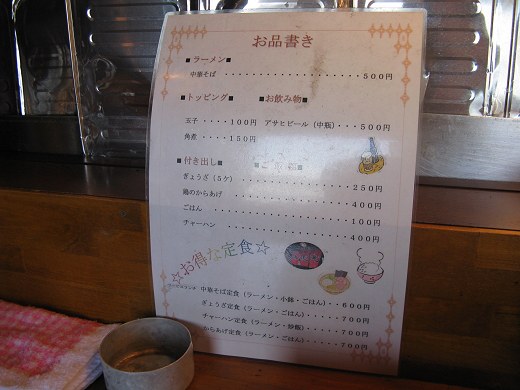 お品書き
■ラーメン■
中華そば ・・・・・・・・・・・・・・・・・・・・・500円
■トッピング■ ■お飲み物■
玉子 ・・・・100円 アサヒビール(中瓶)・・・500円
角煮 ・・・・150円
■付き出し■
ぎょうざ(5ケ)・・・・・・・・・・・・・・250円
鶏のからあげ ・・・・・・・・・・・・・・400円
ごはん ・・・・・・・・・・・・・・・・・・100円
チャーハン ・・・・・・・・・・・・・・・・400円
☆お得な定食☆
中華そば定食(ラーメン・小鉢・ごはん)・・・600円
ぎょうざ定食(ラーメン・ごはん)・・・・・・700円
チャーハン定食(ラーメン・炒飯)・・・・・・700円
からあげ定食(ラーメン・ごはん)・・・・・・700円